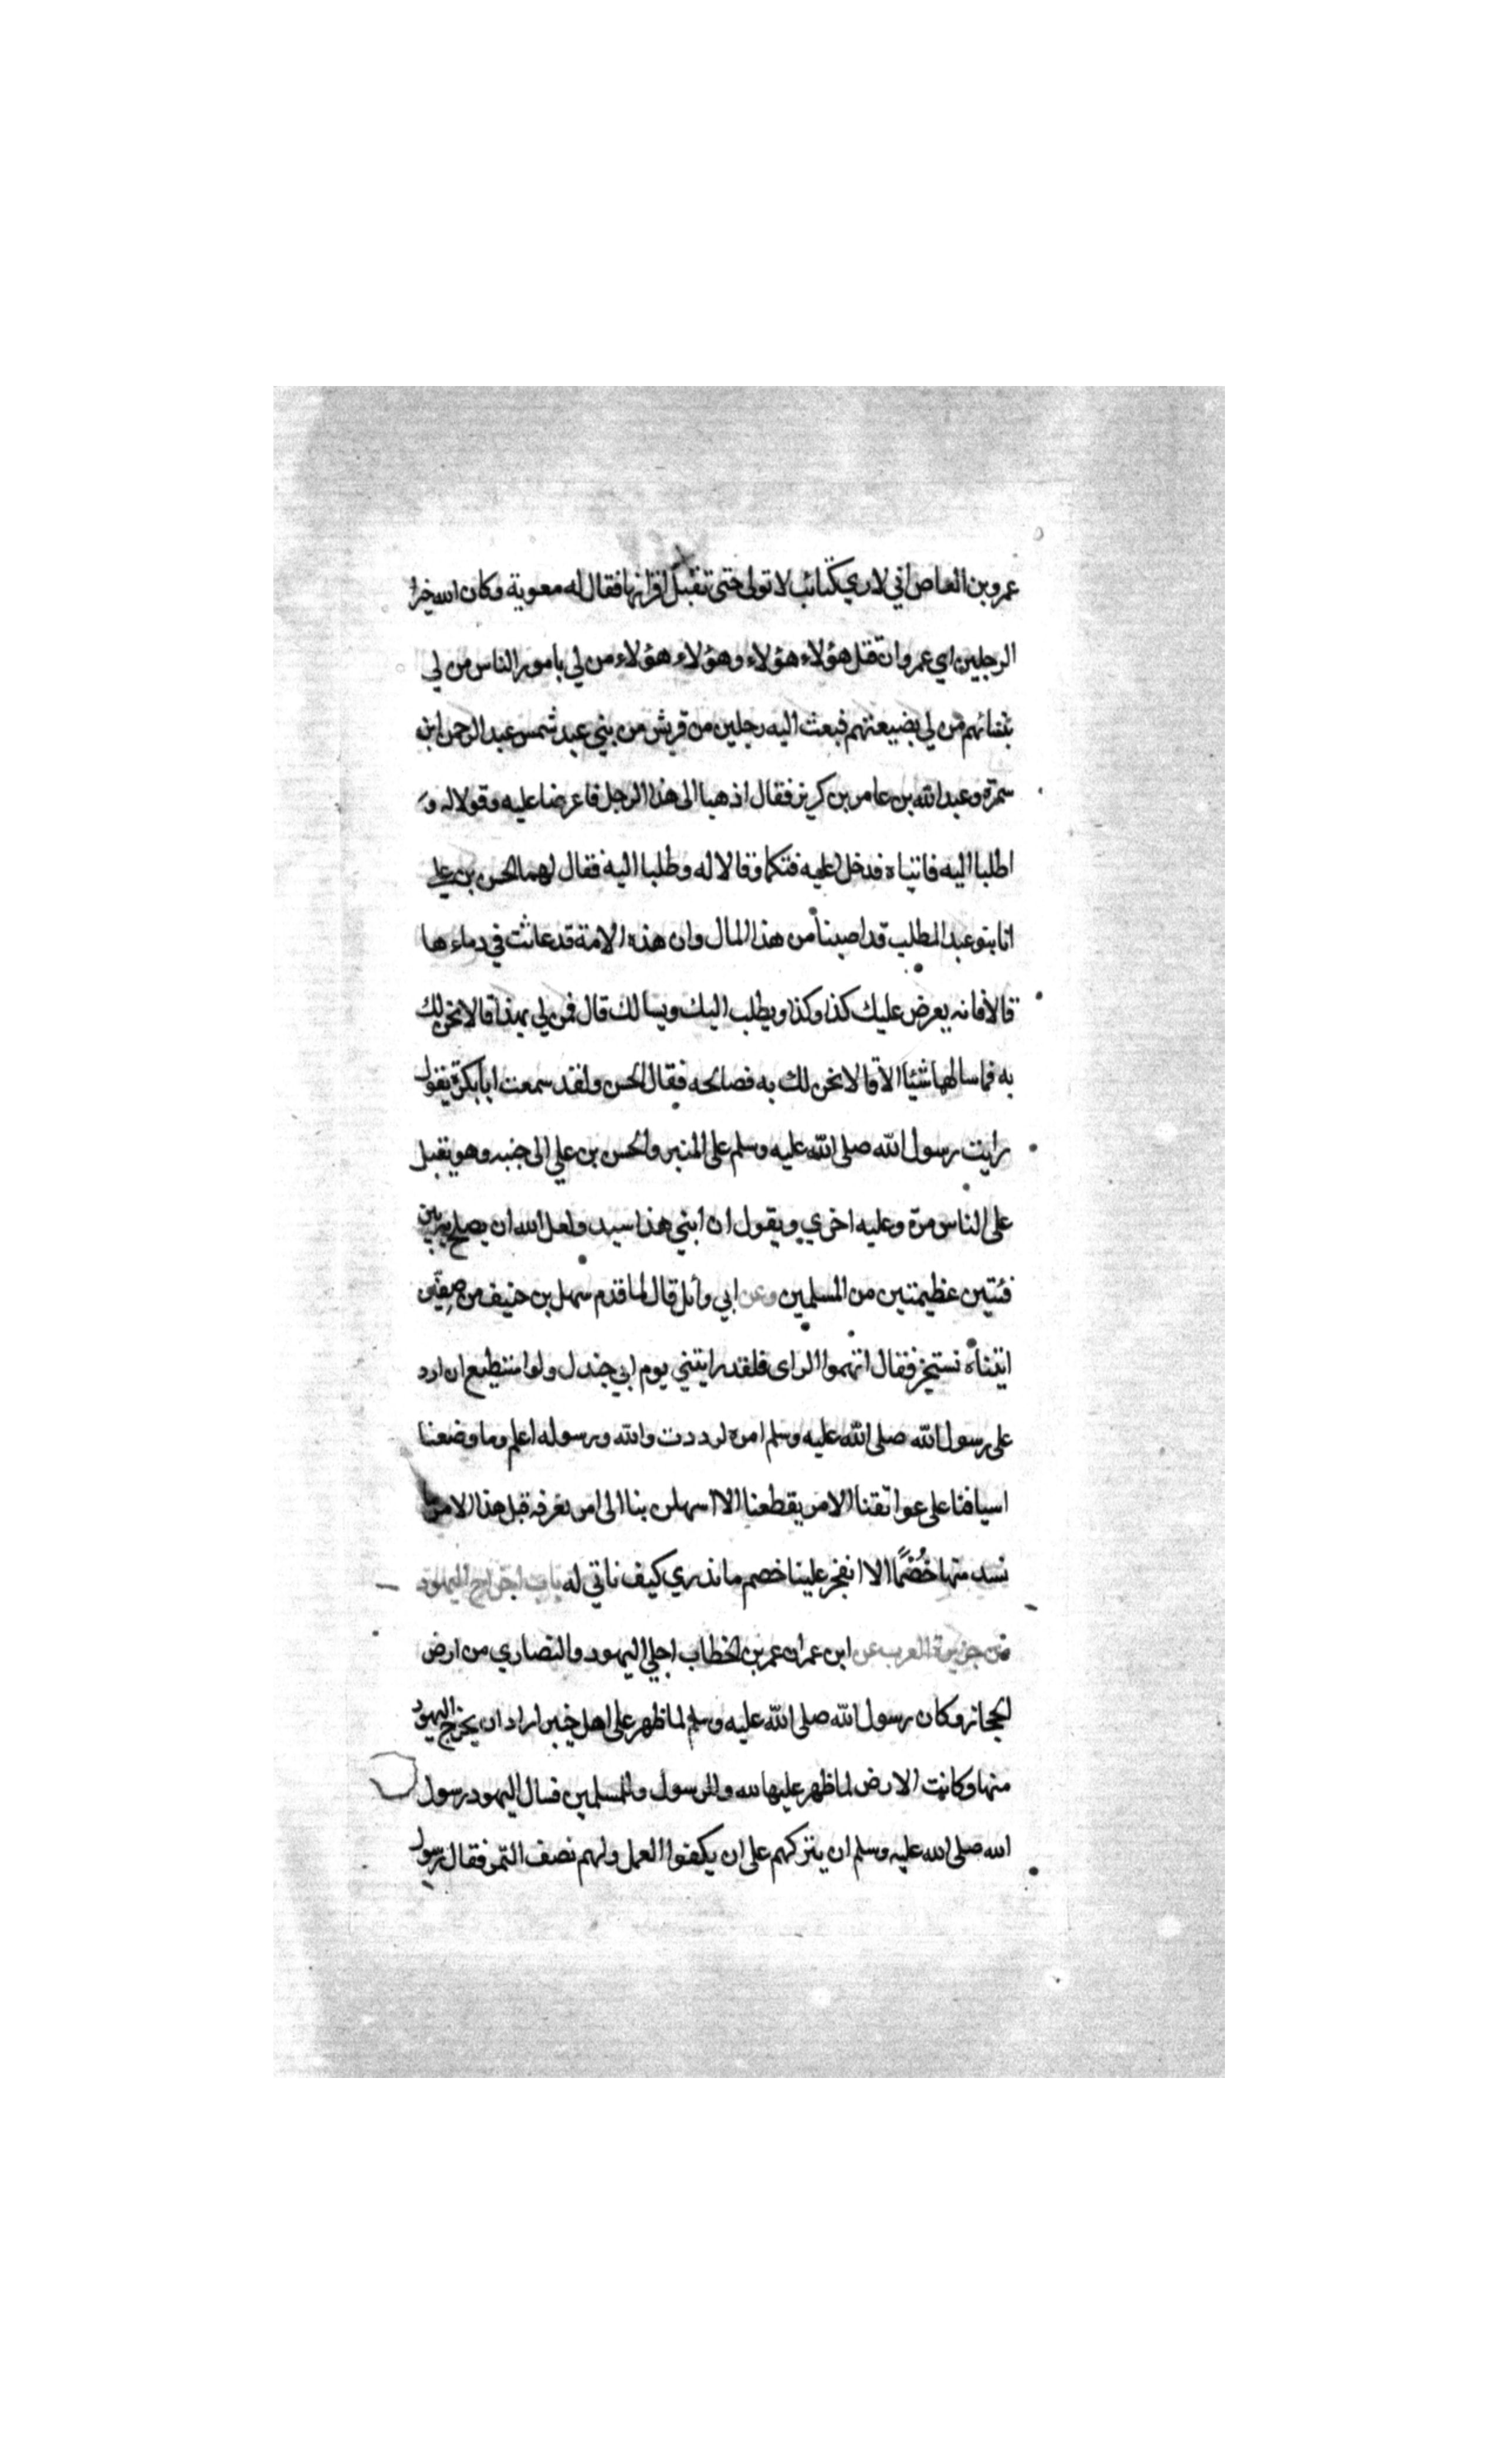 عمرو بن العاص اني لاري كتائب لا تولي حتى تقبل اقرانها فقال له معوية وكان الله خير
الرجلين اي عمرو ان قتل هؤلاء هؤلاء وهؤلاء هؤلاء من لي بامور الناس من لي
بنسائهم من لي بضيعتهم فبعث اليه رجلين من قريش من بني عبد شمس عبد الرحمن ابن
سمرة وعبد الله بن عامر بن كريز فقال اذهبا الى هذا الرجل فاعرضا عليه وقولا له و
اطلبا اليه فاتياه فدخلا عليه فتكلما وقالا له وطلبا اليه فقال لهما الحسن بن علي
انا بنو عبد المطلب قد اصبنا من هذا المال وان هذه الامة قد عاثت في دماءها
قالا فانه يعرض عليك كذا وكذا ويطلب اليك ويسالك قال فمن لي بهذا قالا نحن لك
به فما سالهما شيئا الا قالا نحن لك به فصالحه فقال الحسن ولقد سمعت ابا بكرة يقول
رايت رسول الله صلى الله عليه وسلم على المنبر والحسن بن علي الى جنبه وهو يقبل
على الناس مرة وعليه اخري ويقول ان ابني هذا سيد ولعل الله ان يصلح به بين
فئتين عظيمتين من المسلمين وعن ابي وائل قال لما قدم سهل بن حنيف من صفين
اتيناه نستخبر فقال اتهموا الراى فلقد رايتني يوم ابي جندل ولو استطيع ان ارد
على رسول الله صلى الله عليه وسلم امره لرددت والله ورسوله اعلم وما وضعنا
اسيافنا على عواتقنا الامر يقطعنا الا اسهلن بنا الى امر نعرفه قبل هذا الامر ما
نسد منها خُصْمًا الا انفجر علينا خصم ما ندري كيف ناتي له باب اخراج اليهود
من جزيرة العرب عن ابن عمر ان عمر بن الخطاب اجلي اليهود والنصاري من ارض
الحجاز وكان رسول الله صلى الله عليه وسلم لما ظهر على اهل خيبر اراد ان يخرج اليهود
منها وكانت الارض لما ظهر عليها لله وللرسول وللمسلمين فسال اليهود رسول
الله صلى الله عليه وسلم ان يتركهم على ان يكفوا العمل ولهم نصف التمر فقال رسول